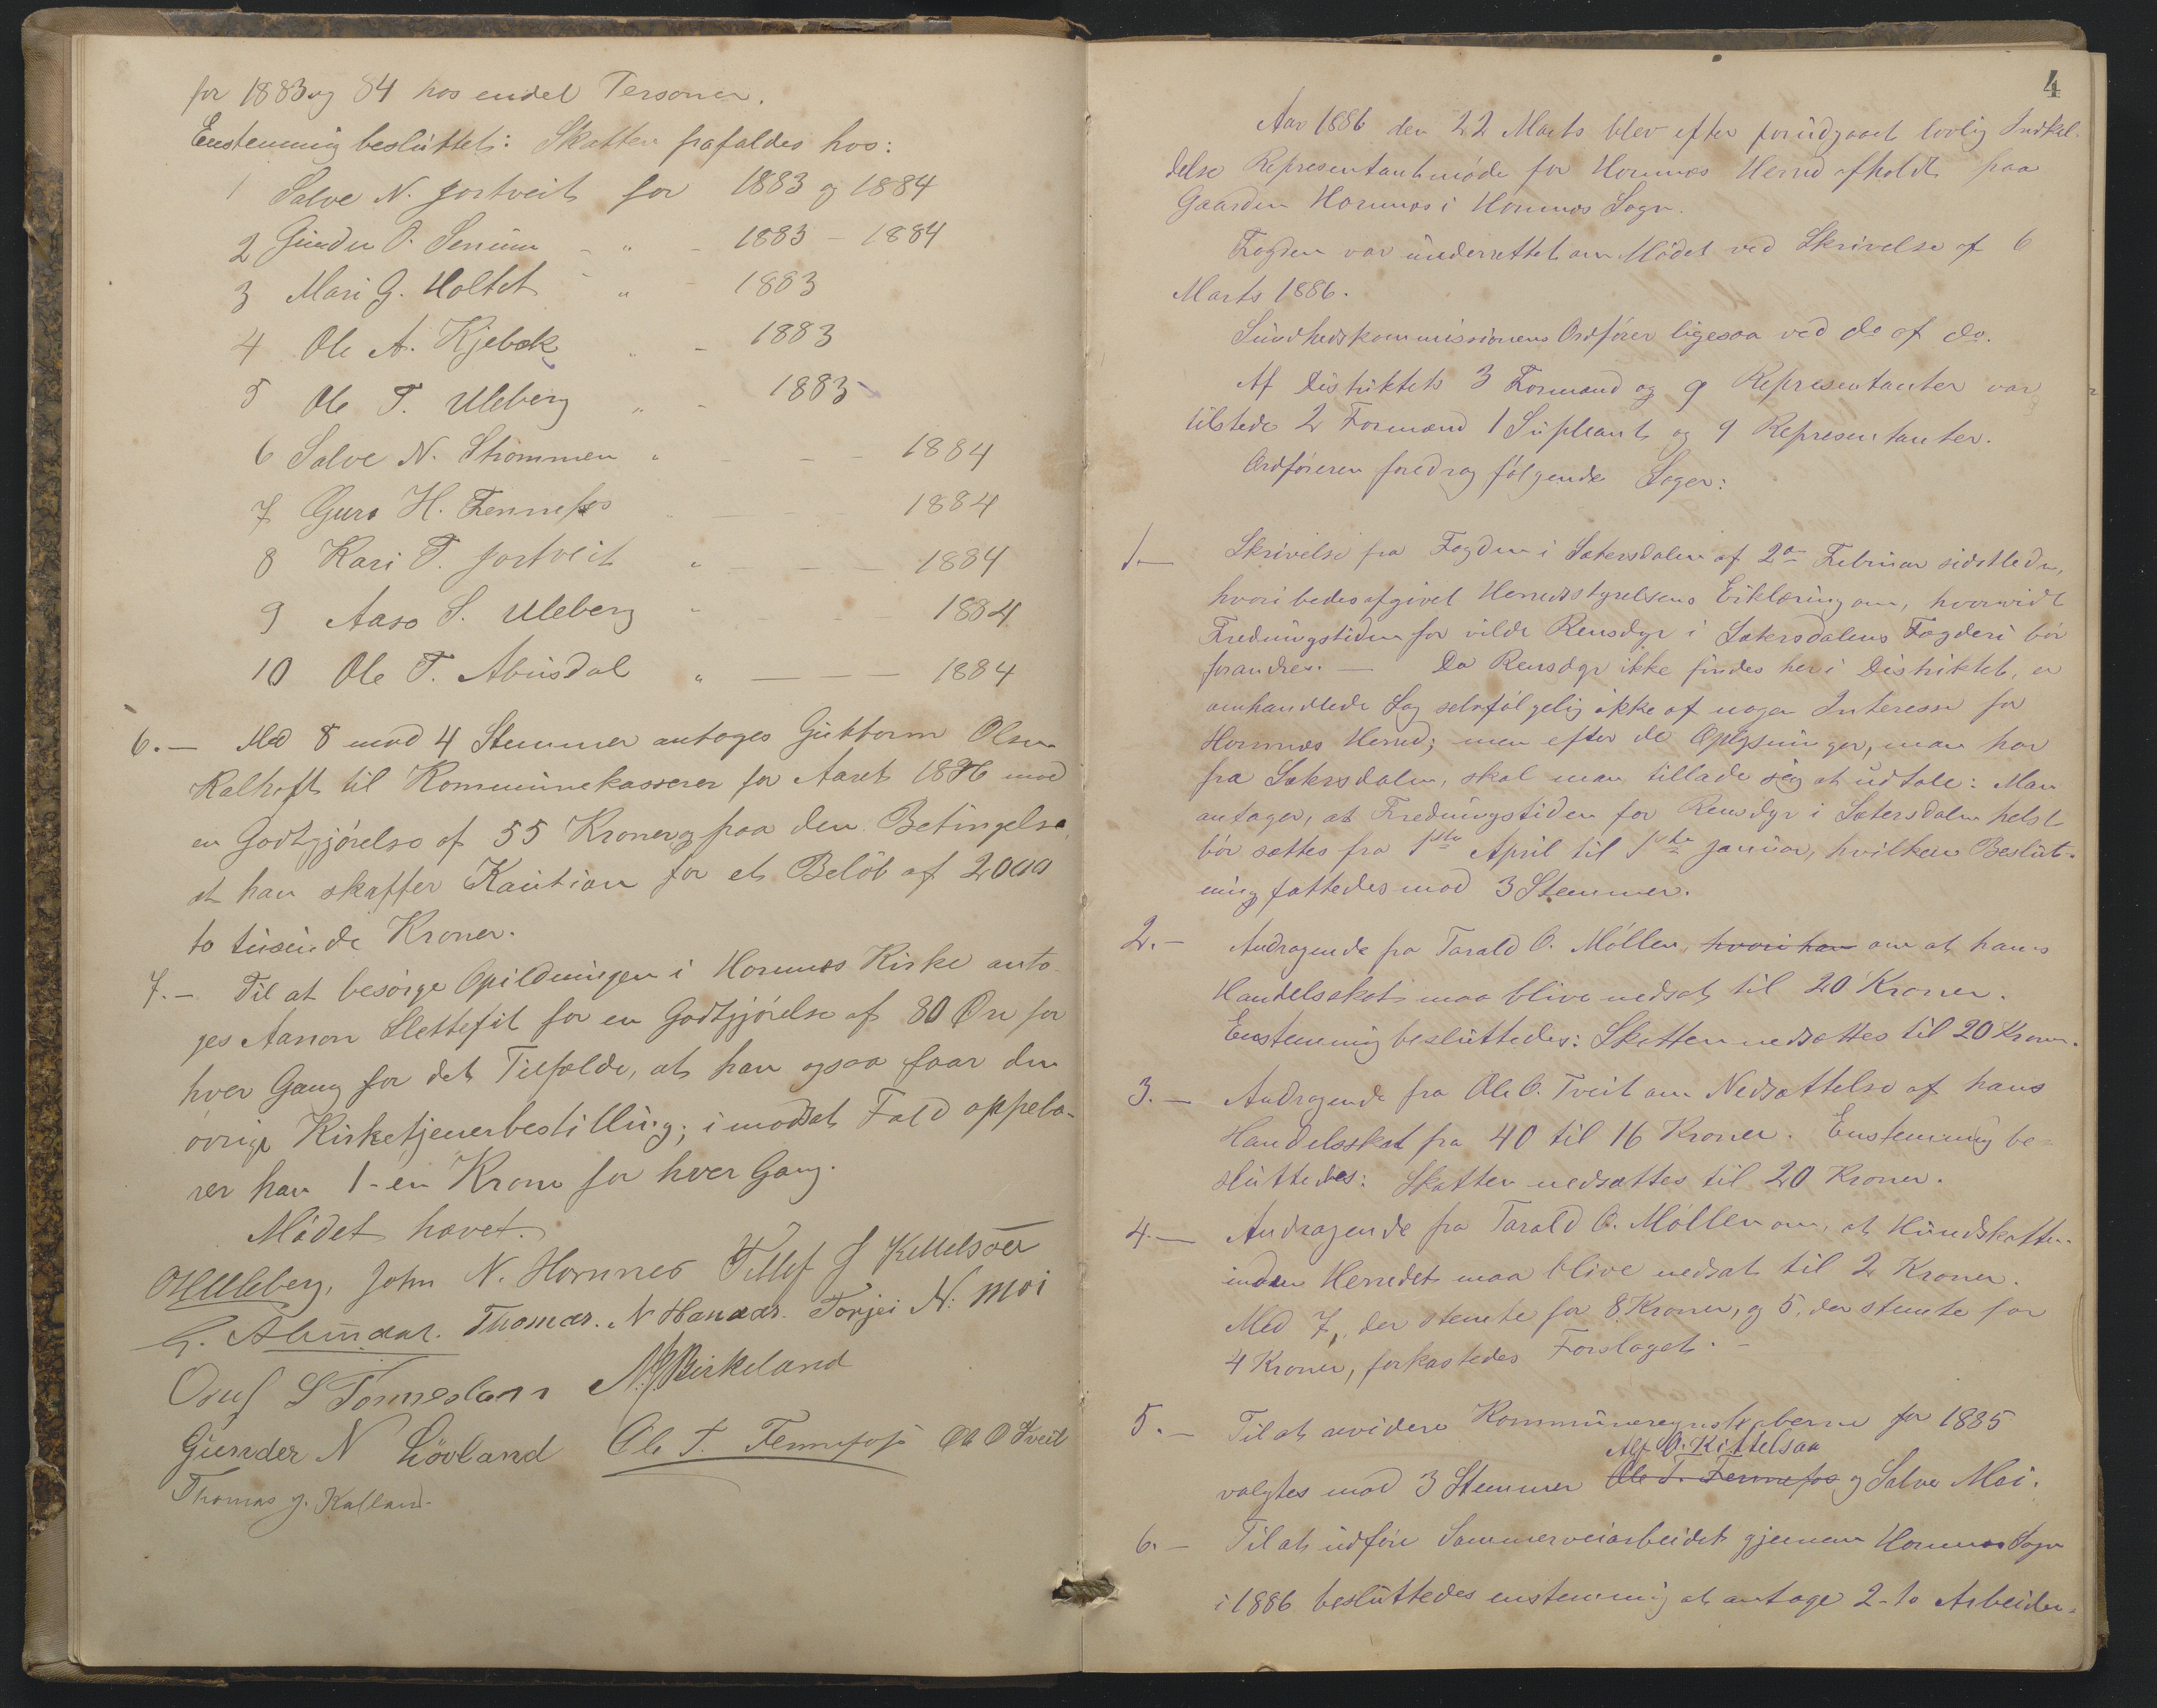 for 1883 og 84 hos endel Personer.
Enstemmig besluttet: Skatten frafaldes hos:
1 Salve N. Fortveit for 1883 og 1884
2 Gunder O. Senum - " - 1883 - 1884
3 Mari G. Holtet - " - 1883
4 Ole A. Kjebæk " - 1883
5 Ole T. Uleberg " - 1883
6 Salve N. Strømmen " - - - 1884
7 Guro H. Fennefos - - - 1884
8 Kari T. Fortveit " - - - 1884
9 Aaso S. Uleberg " - - - 1884
10 Ole T. Abusdal " - - - 1884
6. - Med 8 mod 4 Stemmer antoges Guttorm Olsen
Kalhoft til Kommunekasserer for Aaret 1886 mod
en Godtgjörelse af 55 Kroner og paa den Betingelse,
at han skaffer Kaution for et Belöb af 2000
to tusinde Kroner.
7. - Til at besörge Opildningen i Hornnes Kirke anto-
ges Aanon Slettefit for en Godtgjörelse af 80 Öre for
hver Gang for det Tilfælde, at han ogsaa faar den
övrige Kirketjenerbestilling; i modsat Fald oppebæ-
rer han 1 - en Krone for hver Gang.
Mödet hævet.
OHUleberg, John N. Hornnes Tellef J Kittelsaa
G. Abusdal. Thomas. N Hannaas. Torjei N: Moi
Osuf S Tønneslann N. J. Birkeland
Gunder N Lövland Ole T. Fennefos Ole O Tveit
Thomas J. Kalland.
4
Aar 1886 den 22 Marts blev efter forudgaaet lovlig Indkal-
delse Representantmöde for Hornnes Herred afholdt paa
Gaarden Hornnes i Hornnes Sogn.
Fogden var underrettet om Mödet ved Skrivelse af 6
Marts 1886.
Sundhedskommissionens Ordförer ligesaa ved do af do.
Af Distriktets 3 Formænd og 9 Representanter var
tilstede 2 Formænd 1 Supleant og 9 Representanter.
Ordföreren foredrog fölgende Sager:
1. - Skrivelse fra Fogden i Sætersdalen af 2den Februar sidstleden,
hvori bedes afgivet Herredsstyrelsens Erklæring om, hvorvidt
Fredningstiden for vilde Rensdyr i Sætersdalens Fogderi bör
forandres. - Da Rensdyr ikke findes her i Distriktet, er
omhandlede Sag selvfölgelig ikke af nogen Interesse for
Hornnes Herred; men efter de Oplysninger, man har
fra Sætersdalen, skal man tillade sig at udtale: Man
antager, at Fredningstiden for Rensdyr i Sætersdalen helst
bör sættes fra 1ste April til 1ste Januar, hvilken Beslut-
ning fattedes mod 3 Stemmer.
2. - Andragende fra Tarald O. Möllen, hvori han om at hans
Handelsskat maa blive nedsat til 20 Kroner.
Enstemmig besluttedes: Skatten nedsættes til 20 Kroner.
3. - Andragende fra Ole O. Tveit om Nedsættelse af hans
Handelsskat fra 40 til 16 Kroner. Enstemmig be-
sluttedes: Skatten nedsættes til 20 Kroner.
4. - Andragende fra Tarald O. Möllen om, at Hundskatten
inden Herredet maa blive nedsat til 2 Kroner.
Med 7, der stemte for 8 Kroner, og 5, der stemte for
4 Kroner, forkastedes Forslaget. -
5. - Til at revidere Kommuneregnskaberne for 1885
Alf O. Kittelsaa
valgtes mod 3 Stemmer Ole T. Fennefos og Salve Moi.
6. - Til at udföre Sommerveiarbeidet gjennem Hornnes Sogn
i 1886 besluttedes enstemmig at antage 2 - to Arbeider-